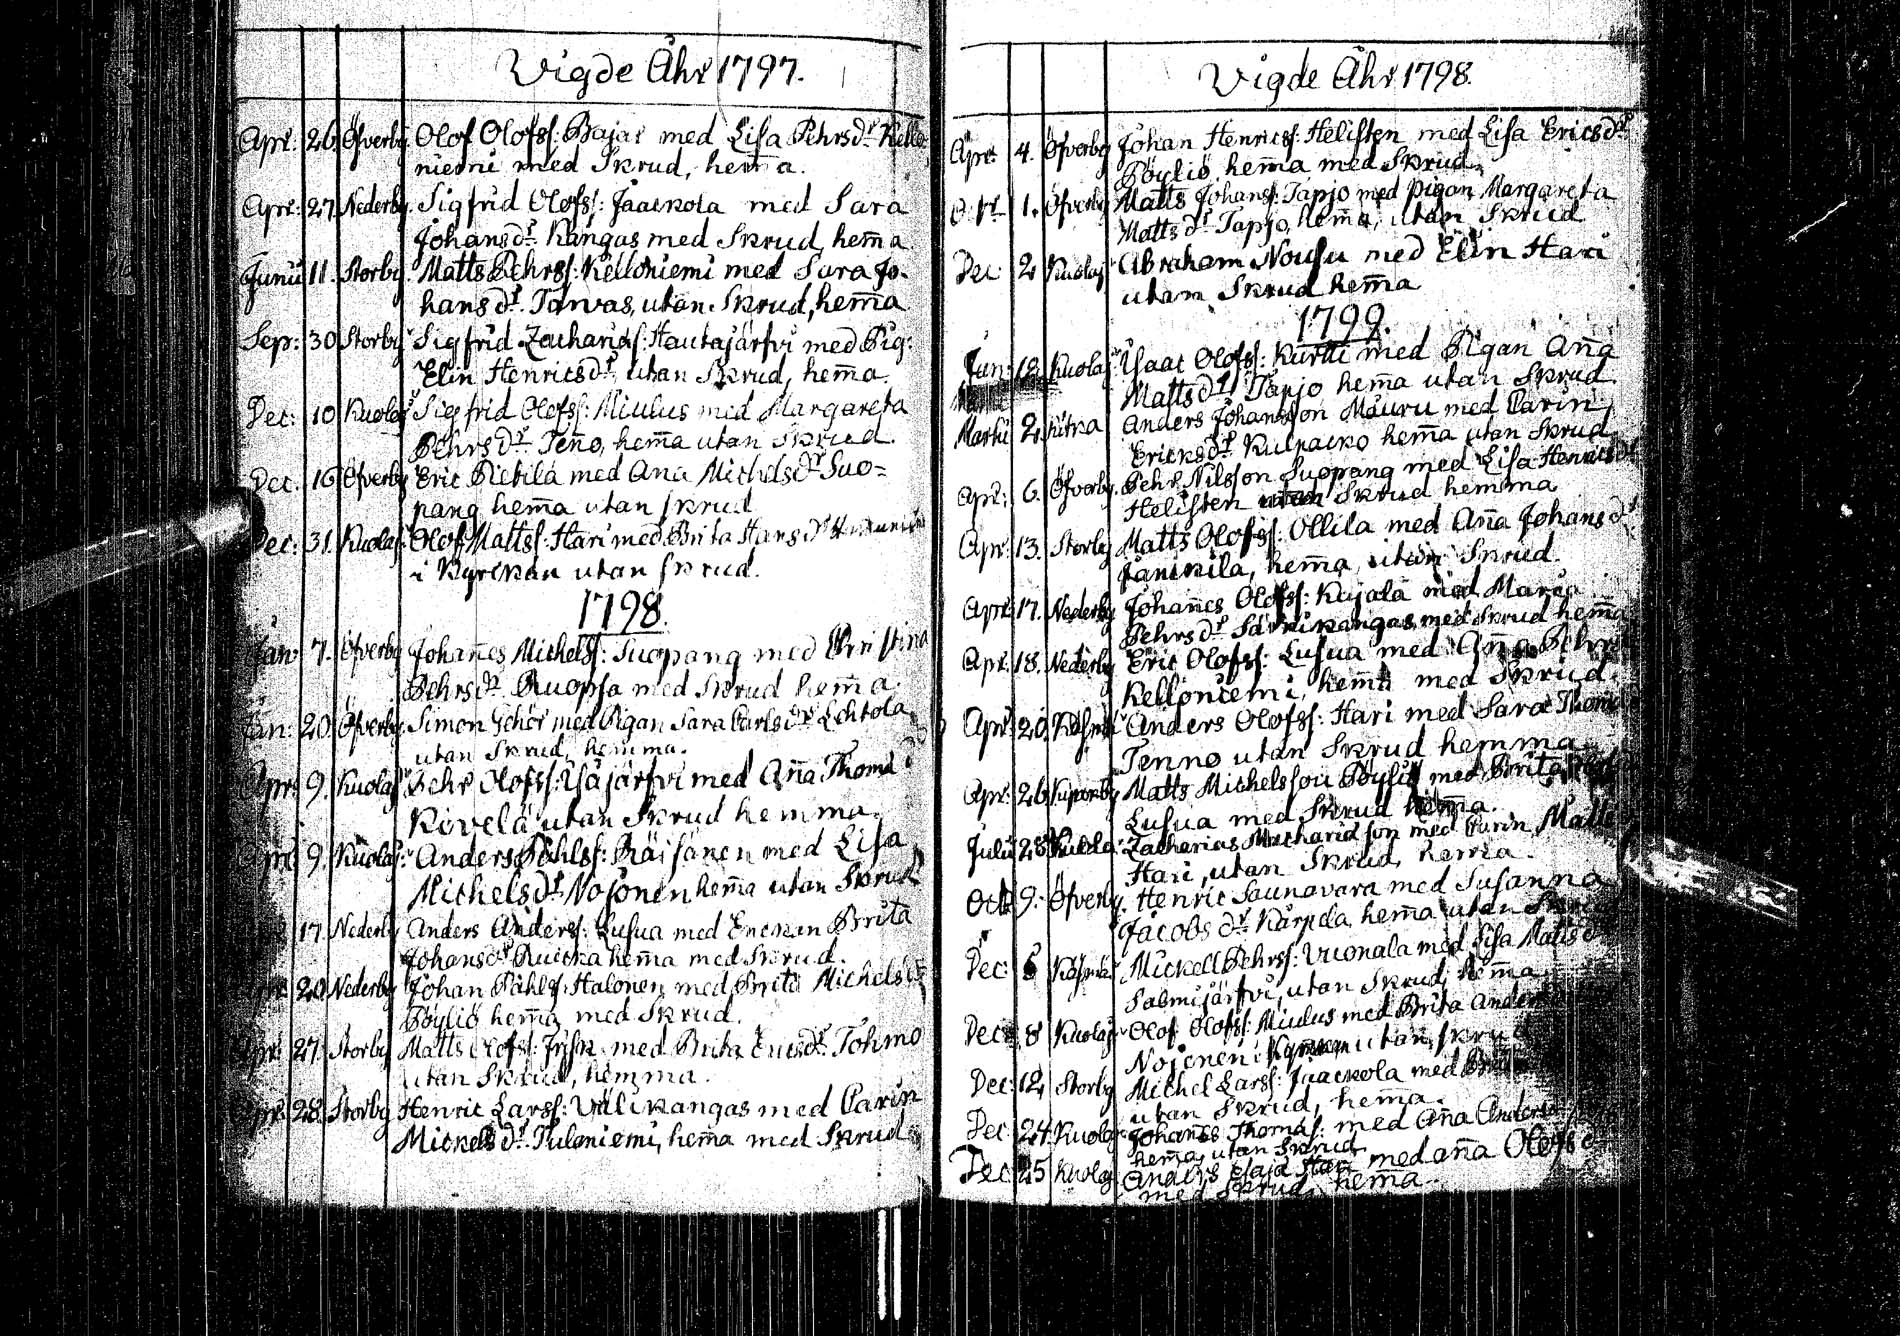 Vigde Åhr 1797.
Apr: 26. Öfverby Olof Olofss: Bajar med Lisa Pehrsdr. Kello
niemi med Skrud, hem̄a.
Apr: 27. Nederby. Sigfrid Olofss: Jaackola med Sara
Johansdr. Kangas med Skrud, hem̄a
Junii 11. Storby Matts Pehrss: Kelloniemi med Sara Jo-
hansdr. Torvas, utan Skrud, hem̄a
Sep: 30 Storby Sigfrid Zachariæss: Hautajärfvi med Pig:
Elin Henricsdr. utan Skrud, hem̄a.
Dec: 10 Kuolaj: Sigfrid Olofss: Miulus med Margareta
Pehrsdr. Ten̄o, hem̄a utan Skrud.
Dec: 16 Öfverby Eric Pietilä med Ana Michelsdr. Suo=
pang hem̄a utan skrud
Dec: 31. Kuolaj: Olof Mattss: Hari med Brita Hansdr
i Kyrckan utan skrud.
1798.
Jan: 7. Öfverby Johan̄es Michelss: Suopang med Christina
Pehrsdr. Ruopsa med Skrud hem̄a.
Jan: 20. Öfverby. Simon Gehör med Pigan Sara Carlsdr. Lehtola
utan Skrud, hemma.
Apr: 9. Kuolaj: Pehr Olofss: Isajärfvi med An̄a Thomæ dr
Kivelä utan Skrud hemma.
Apr: 9. Kuolaj: Anders Påhlss: Räisänen med Lisa
Michelsdr. Nojonen hem̄a utan Skrud
17. Nederby Anders Anderss: Lusua med Enckan Brita
Johansdr. Ruicka hem̄a med Skrud.
Apr: 20. Nederby Johan Påhlss: Halonen med Brita Michelsdr
Pöyliö hem̄a med Skrud.
Apr: 27. Storby Matts Olofss: Frisk med Brita Ericsdr. Tohmo
utan Skrud, hemma.
Apr: 28. Storby Henric Larss: Välikangas med Carin
Mickelsdr. Tulaniemi, hem̄a med Skrud
Vigde Åhr 1798.
Apr: 4. Öfverby Johan Henricss: Helisten med Lisa Ericsdr
Pöyliö, hem̄a med Skrud.
1. Öfverby Matts Johanss: Tapjo med pigan Margareta
Mattsdr. Tapjo, hem̄a, utan Skrud
Dec: 2 Kuolaj: Abraham Nousu med Elin Hari
utam Skrud hem̄a
1799.
Jan: 12. Kuolaj: Isaac Olofss: Kurtti med Pigan An̄a
Mattsdr. Tapjo hem̄a utan Skrud.
Martii 2. Anders Johansson Mauru med Carin
Ericksdr. Kulpacko hem̄a utan Skrud
Apr: 6. Öfverby. Pehr Nilsson Suopang med Lisa Henricsdr
Helisten Skrud hemma
Apr: 13. Storby Matts Olofss: Ollila med An̄a Johansdr
Jänckilä, hem̄a, utan Skrud.
Apr: 17. Nederby Johan̄es Olofss: Kajala med Maria
Pehrsdr. Särkikangas, med Skrud hem̄a
Apr: 18. Nederby Eric Olofss: Lusua med An̄a Pehrs
Kelloniemi, hem̄a med Skrud.
Apr: 20. Anders Olofss: Hari med Sara Thomæ
Tenno utan Skrud hemma
Apr: 26. Matts Michelsson Pöyliö med Brita
Lusua med Skrud hem̄a.
Julii 28 Zacharias Zachariæson med Carin Matts
Hari, utan Skrud, hem̄a.
Octb 9. Öfverby. Henric Saunavara med Susanna
Jacobsdr. Kärpela hem̄a utan Skrud
Dec: Mickell Pehrss: Vuonala med Lisa Mattsdr
Salmijärfvi, utan Skrud, hem̄a.
Dec: 8 Kuolaj: Olof Olofss: Miulus med Brita Anders
Nojonen i Kyrckan utan skrud
Dec: 12. Storby Michel Larss: Jaackola med Brita
utan Skrud, hem̄a.
Dec: 24. Kuolaj: Johan̄es Thomæss: med An̄a Anders
hem̄a, utan Skrud
Dec: 25 Kuolaj: Anders Hari med an̄a Olofsd
med Skrud, hem̄a.